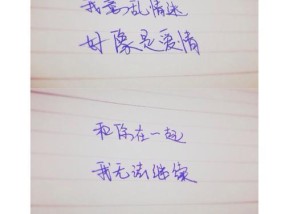 我意乱情迷
好像是爱情
和你在一起
我无法继续